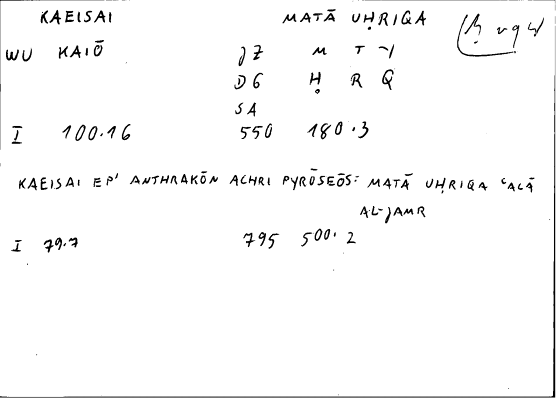 KAEISAI MATĀ UḤRIQA
WU KAIŌ JZ M T -Y
DG Ḥ R Q
SA
I 100.16 550 180.3
KAEISAI EP' ANTHRAKŌN ACHRI PYRŌSEŌS: MATĀ UḤRIQA ʿALĀ
AL-JAMR
I 79.7 795 500.2